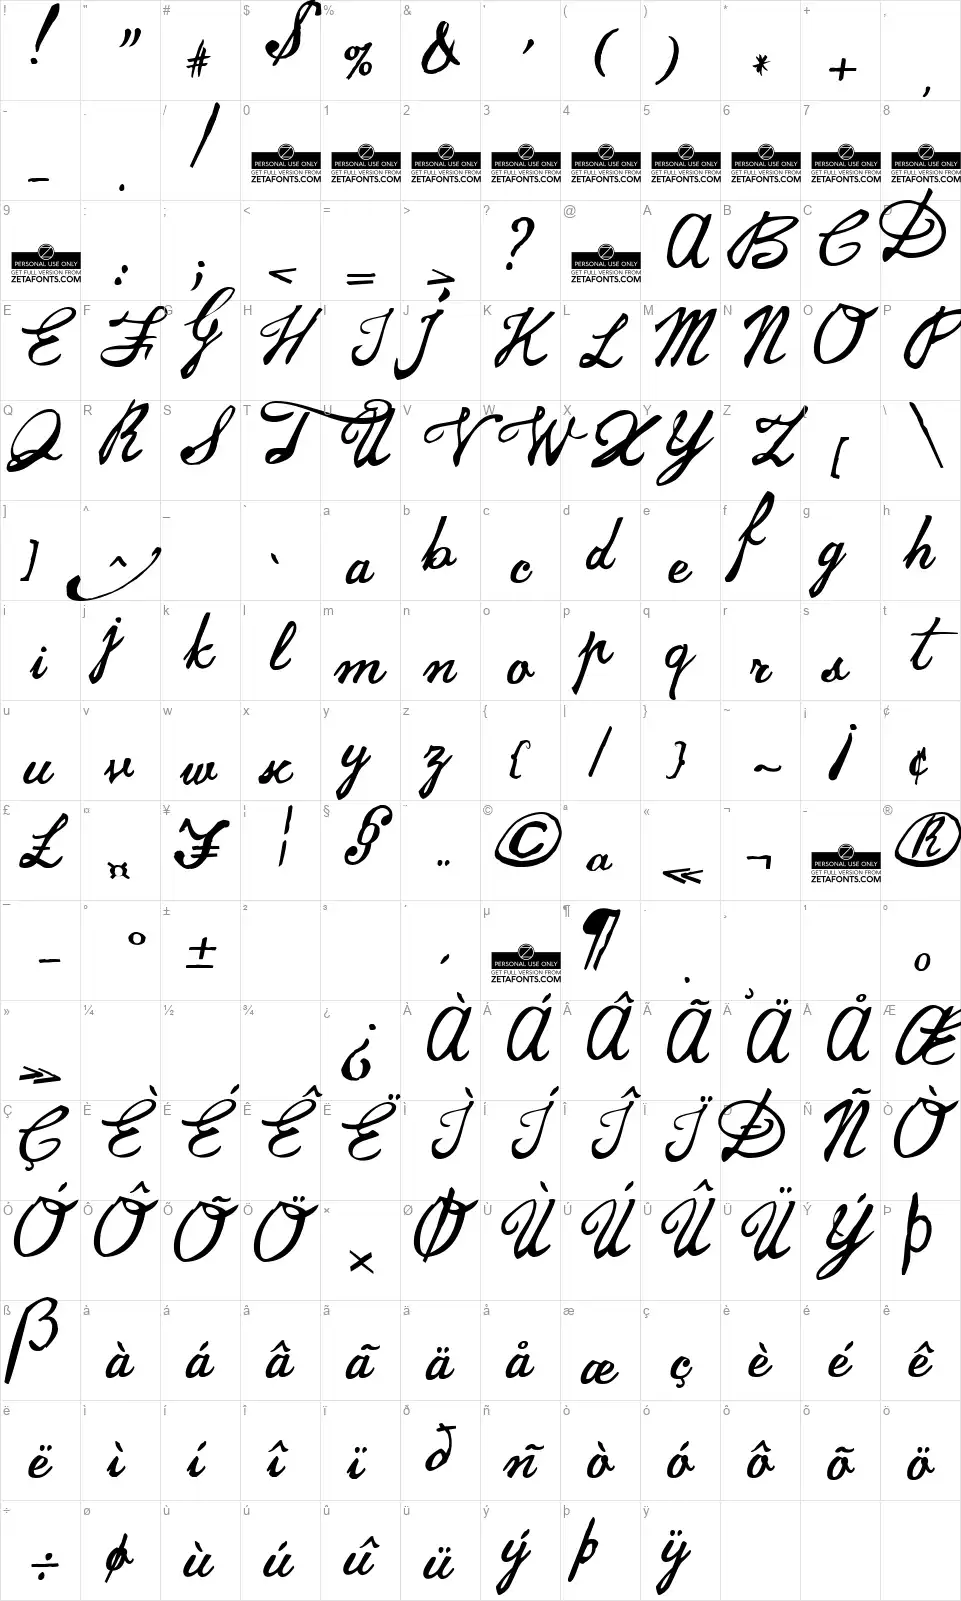 ! " # $ % & ' ( ) * + ,
! " # $ % & ' ( ) * + ,
- . / 0 1 2 3 4 5 6 7 8
- . / PERSONAL USE ONLY PERSONAL USE ONLY PERSONAL USE ONLY PERSONAL USE ONLY PERSONAL USE ONLY PERSONAL USE ONLY PERSONAL USE ONLY PERSONAL USE ONLY PERSONAL USE ONLY
GET FULL VERSION FROM GET FULL VERSION FROM GET FULL VERSION FROM GET FULL VERSION FROM GET FULL VERSION FROM GET FULL VERSION FROM GET FULL VERSION FROM GET FULL VERSION FROM GET FULL VERSION FROM
ZETAFONTS.COM ZETAFONTS.COM ZETAFONTS.COM ZETAFONTS.COM ZETAFONTS.COM ZETAFONTS.COM ZETAFONTS.COM ZETAFONTS.COM ZETAFONTS.COM
9 : ; < = > ? @ A B C D
PERSONAL USE ONLY : ; < = > ? PERSONAL USE ONLY A B C D
GET FULL VERSION FROM GET FULL VERSION FROM
ZETAFONTS.COM ZETAFONTS.COM
E F G H I J K L M N O P
E F G H I J K L M N O P
Q R S T U V W X Y Z [ \
Q R S T U V W X Y Z [ \
] ^ _ ` a b c d e f g h
] ^ _ ` a b c d e f g h
i j k l m n o p q r s t
i j k l m n o p q r s t
u v w x y z { | } ~ ¡ ¢
u v w x y z { | } ~ ¡ ¢
£ ¤ ¥ ¦ § ¨ © ª « ¬ - ®
£ ¤ ¥ ¦ § ¨ © ª « ¬ PERSONAL USE ONLY ®
GET FULL VERSION FROM
ZETAFONTS.COM
¯ ° ± ² ³ ´ µ ¶ · ¸ ¹ º
¯ ° ± ´ PERSONAL USE ONLY ¶ · ¸ º
GET FULL VERSION FROM
ZETAFONTS.COM
» ¼ ½ ¾ ¿ À Á Â Ã Ä Å Æ
» ¿ À Á Â Ã Ä Å Æ
Ç È É Ê Ë Ì Í Î Ï Ð Ñ Ò
Ç È É Ê Ë Ì Í Î Ï Ð Ñ Ò
Ó Ô Õ Ö × Ø Ù Ú Û Ü Ý Þ
Ó Ô Õ Ö × Ø Ù Ú Û Ü Ý Þ
ß à á â ã ä å æ ç è é ê
ß à á â ã ä å æ ç è é ê
ë ì í î ï ð ñ ò ó ô õ ö
ë ì í î ï ð ñ ò ó ô õ ö
÷ ø ù ú û ü ý þ ÿ
÷ ø ù ú û ü ý þ ÿ